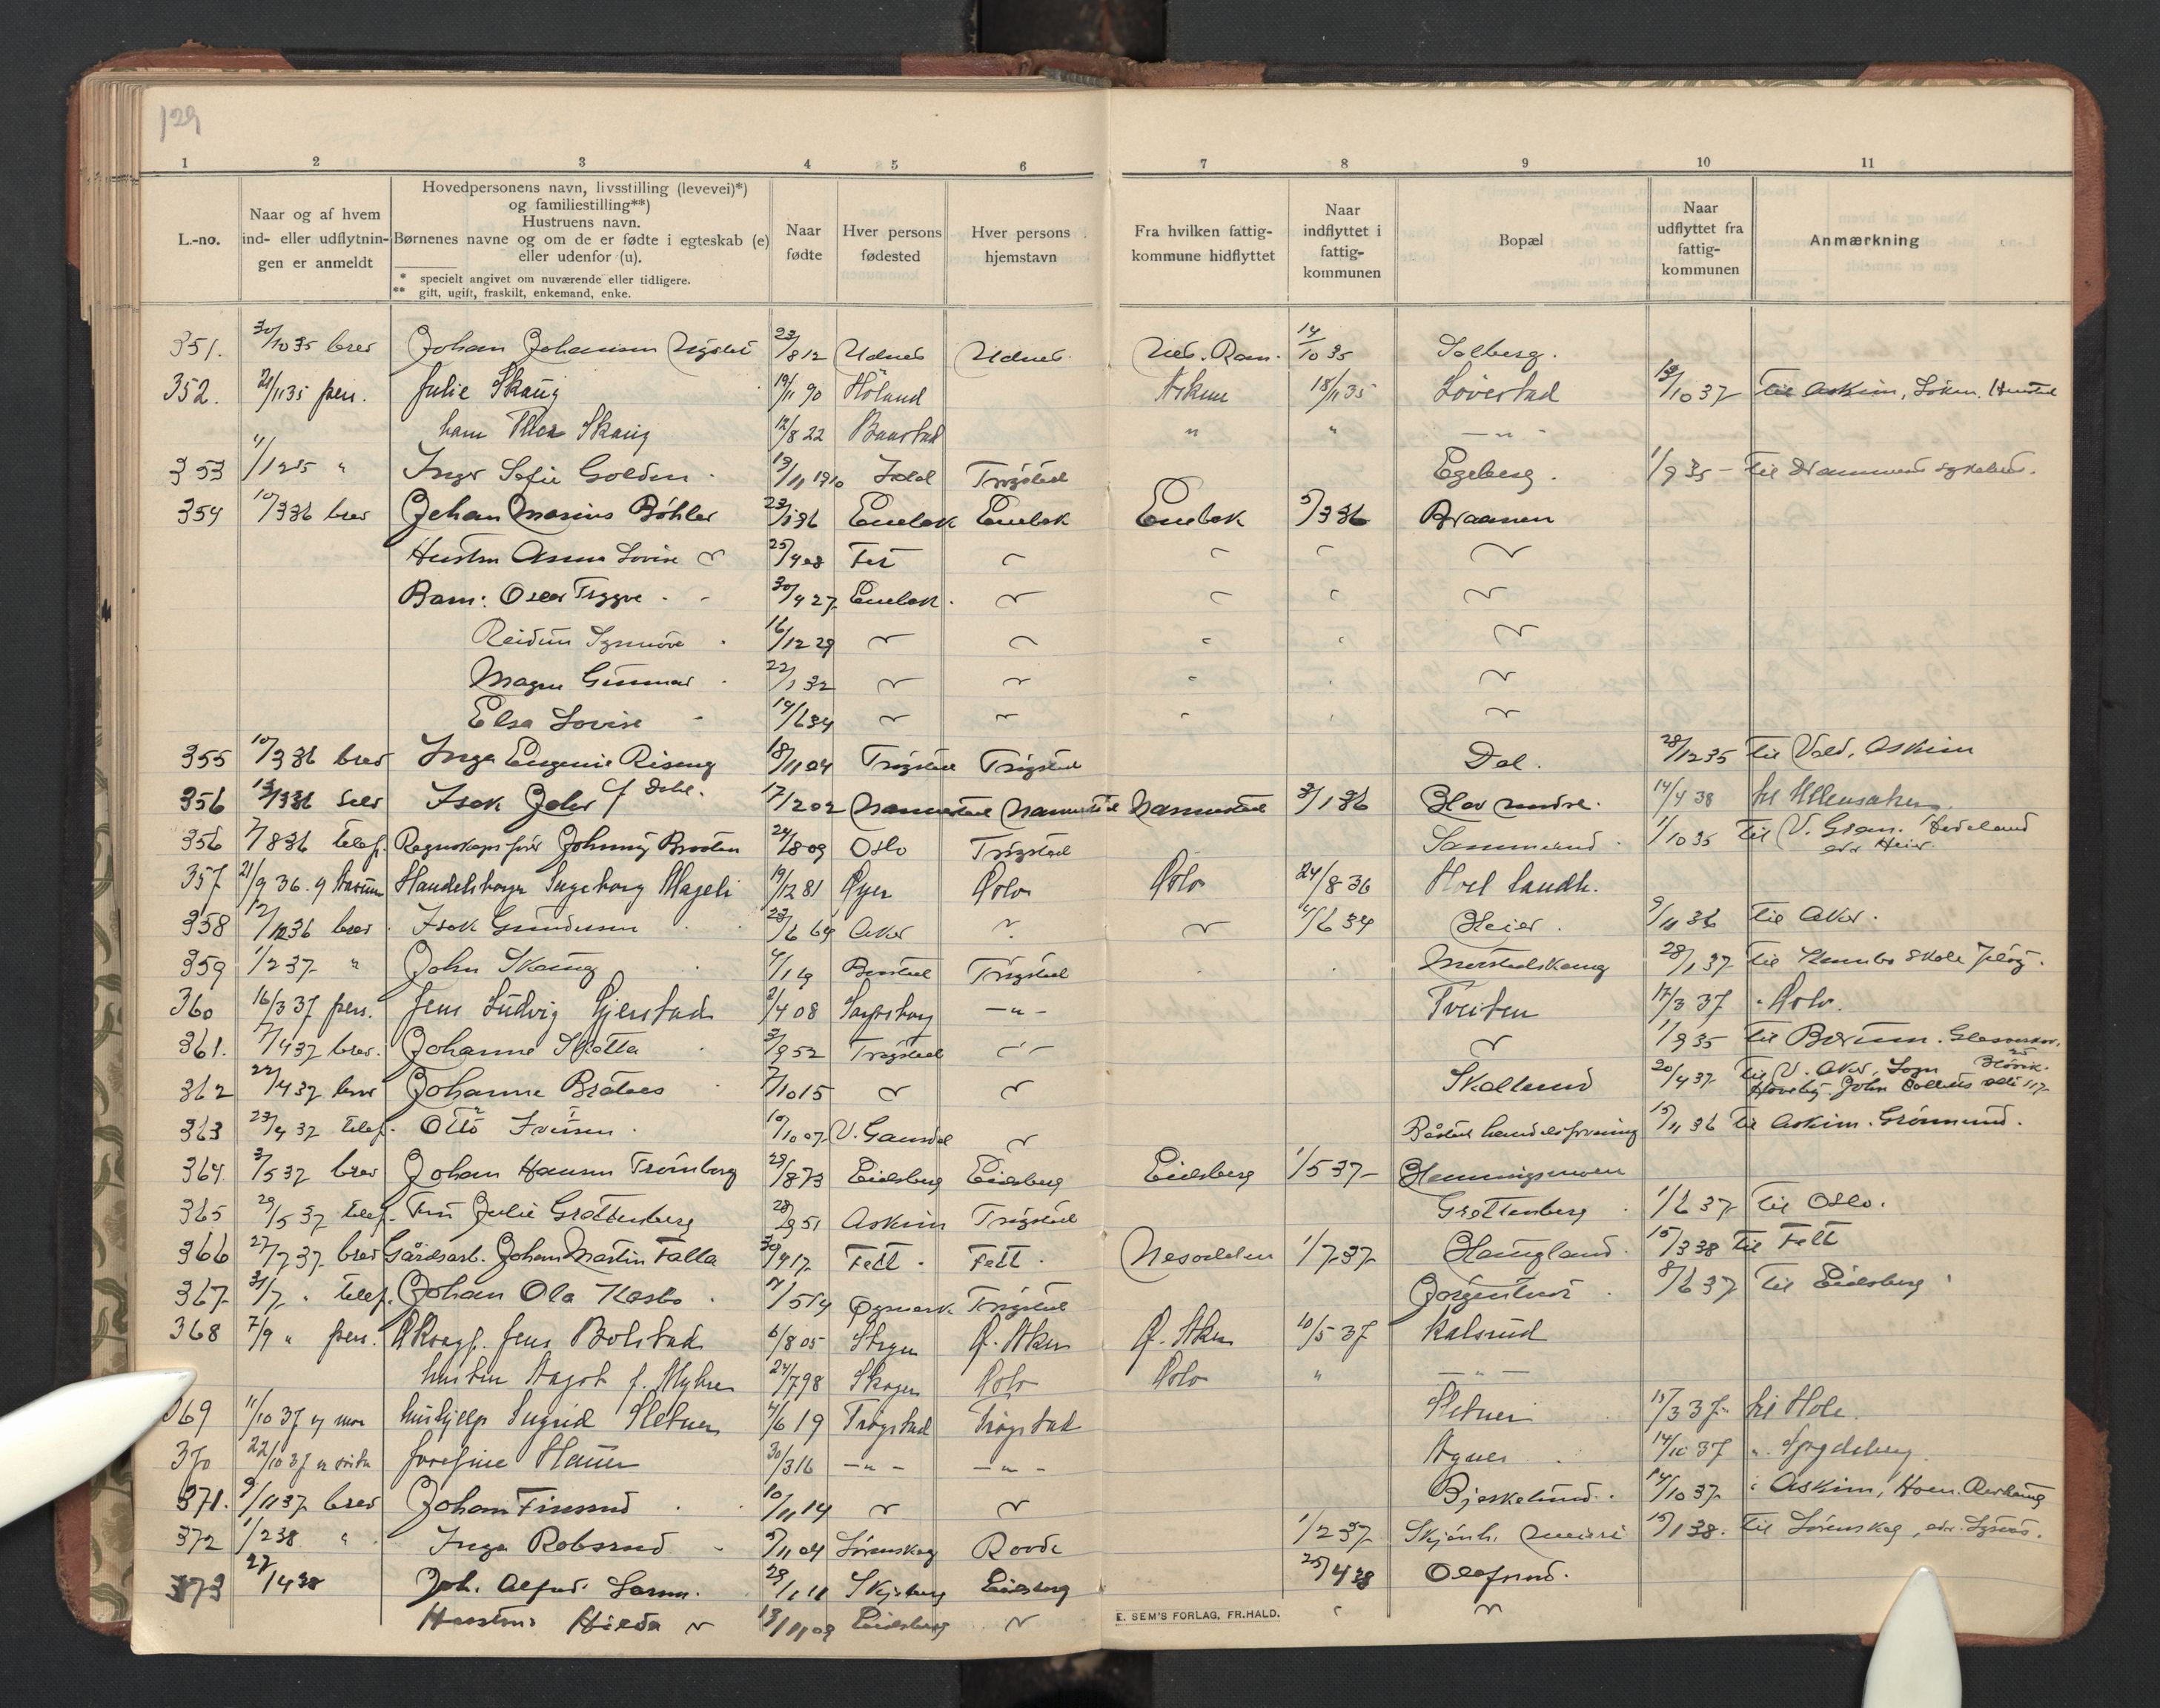 129
1 2 3 4 5 6 7 8 9 10 11
L.-no.
Naar og af hvem
ind- eller udflytnin-
gen er anmeldt
Hovedpersonens navn, livsstilling (levevei)*)
og familiestilling**)
Hustruens navn.
Børnenes navne og om de er fødte i egteskab (e)
eller udenfor (u).
* specielt angivet om nuværende eller tidligere.
** gift, ugift, fraskilt, enkemand, enke.
Naar
fødte
Hver persons
fødested
Hver persons
hjemstavn
Fra hvilken fattig-
kommune hidflyttet
Naar
indflyttet i
fattig-
kommunen
Bopæl
Naar
udflyttet fra
fattig-
kommunen
Anmærkning
351. 30/10 35 brev Johan Johansen 23/8 12 Udnes Udnes Ned. Rom. 14/10 35 Solberg.
352. 21/11 35 pers. Julie Skaug 19/11 90 Höland Askim 18/11 35 Lövestad 13/10 37 Til Askim, Löken,
barn Thor Skaug 12/8 22 Baastad " " — " -
353 1/12 35 " Inger Sofie Golden 13/11 1910 Trögstad Egeberg. 1/9 35 - Til Drammens sykehus.
354 10/3 36 brev Johan Marius Böhler 23/1 36 Enebak Enebak Enebak 5/3 36 Braanen
Hustru Anna Lovise 25/4 08 Fet
Barn: Oscar Trygve 30/4 27 Enebak.
Reidun Synnöve 16/12 29
Magne Gunnar 22/1 32
Elsa Lovise 14/6 34
355 10/3 36 brev Inga Eugenie Riseng 18/11 04 Trögstad Trögstad Dal. 28/12 35 Til Vald, Askim
356 13/3 36 selv Isak Jahr f. Dehl. 17/12 02 Nannestad Nannestad Nannestad 3/1 36 Hov nordre. 14/4 38 til Ullensaker.
356 7/8 36 telef. Regnskapsförer Johnny Braaten 24/8 09 Oslo Trögstad 1/10 35 Til V. Gran. Hadeland
adr Heier.
357 21/9 36. Handelsborger Ingeborg Hageli 19/12 81 Öyer Oslo Oslo 24/8 36 Hoel landh.
358 12/10 36 brev Isak Gundersen 23/6 69 Aker 4/6 34 Heier. 9/11 36 Til Aker.
359 1/2 37 " John Skaug 4/1 19 Baastad Trögstad Mörstadskaug 28/1 37 Til Kambo skole Jelöy.
360 16/3 37 pers. Jens Ludvig Gjerstad 2/4 08 Sarpsborg — " — Tveiten 17/3 37 " Oslo.
361. 7/4 37 brev. Johanne Skotta 3/9 52 Trögstad 1/9 35 Til Bærum.
362 22/4 37 brev Johanne Bråtaas 7/10 15 Skallerud 20/4 37 Til V. Aker, Sogn
John Colletts alle 117
363 23/4 37 telef. Otto Iversen. 10/10 07 V. Gausdal Båstad handelsforening 15/11 36 Til Askim. Grönnsund.
364. 3/5 37 brev Johan Hansen Trömborg 23/8 73 Eidsberg Eidsberg Eidsberg 1/5 37 - Hemmingsmoen
365 29/5 37 telef. Fru Julie Grottenberg 28/9 51 Askim Trögstad Grottenberg 1/6 37 Til Oslo.
366 27/7 37 brev Gårdsarb. Johan Martin Falla 30/4 17 Fett. Fett. Nesodden 1/7 37 Haugland 15/3 38 Til Fett
367 31/7 " telef. Johan Ola Kasbo 11/5 14 Öymark Trögstad Jörgentvet 8/6 37 Til Eidsberg
368 7/9 " pers. Jens Bolstad 6/8 05 Stryn Ö. Aker Ö. Aker 10/5 37 Kalsrud
hustru Aagot f. Myhre 24/7 98 Skoger Oslo Oslo " — " —
369 11/10 37 av mor hushjelp Sigrid Sletner 4/6 19 Trögstad Trögstad Sletner 15/3 37 til Hole.
370 22/10 37 Josefine Hauer 30/3 16 — " — — " — 14/10 37 "
371. 9/11 37 brev Johan Finsrud 10/11 14 Bjerkelund. 14/10 37 " Askim,
372 1/2 38 " Inga Robsrud 5/11 04 Lörenskog Raade 1/2 37 Skjönh. meieri 15/1 38. Til Lörenskog, adr.
373 27/4 38 Joh. Alfred Larsen. Skjeberg Eidsberg 25/4 38 Olafsrud.
Hustru Hilda 13/11 09 Eidsberg
E. SEM'S FORLAG, FR.HALD.